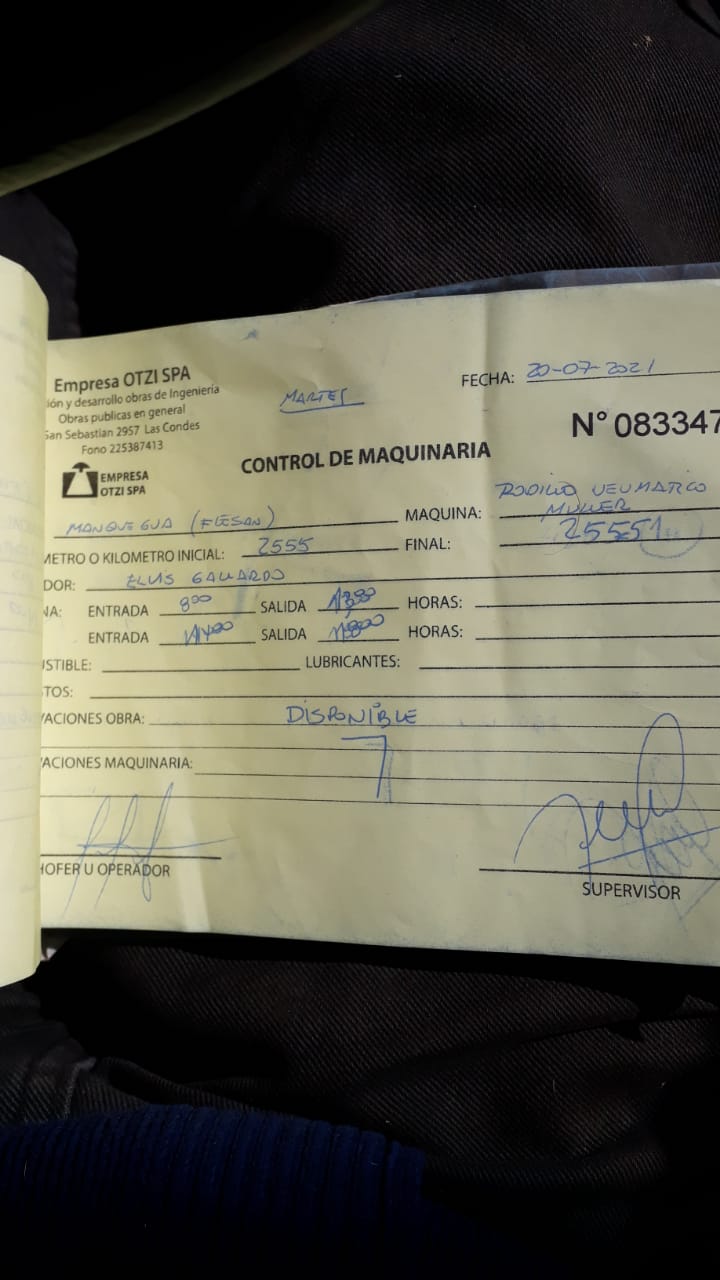 Empresa OTZI SPA
ión y desarrollo obras de Ingeniería
Obras publicas en general
San Sebastian 2957 Las Condes
Fono 225387413
EMPRESA
OTZI SPA
MARTES
FECHA: 20-07-2021
N° 083347
CONTROL DE MAQUINARIA
MANQUEGUA (FLESAN) MAQUINA: RODILLO NEUMATICO
MULLER
METRO O KILOMETRO INICIAL: 2555 FINAL: 25551
DOR: ELVIS GALLARDO
NA: ENTRADA 8 00 SALIDA HORAS:
ENTRADA SALIDA HORAS:
STIBLE: LUBRICANTES:
TOS:
VACIONES OBRA: DISPONIBLE
VACIONES MAQUINARIA:
HOFER U OPERADOR
SUPERVISOR